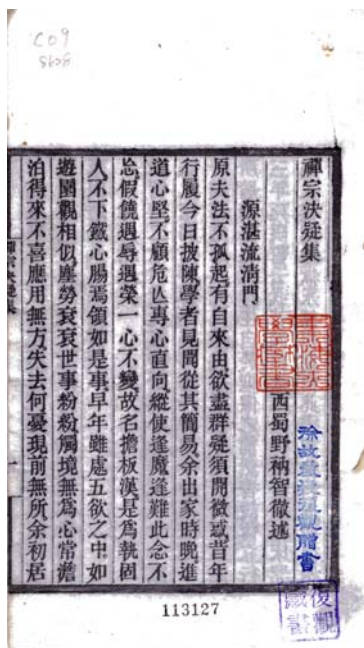 禪宗決疑集
西蜀野衲智徹述
源湛流淸門
原夫法不孤起有自來由欲盡群疑須開微惑昔年
行履今日披陳學者見聞從其簡易余出家時晚進
道心堅不顧危亾專心直向縱使逢魔逢難此念不
忘假饒遇辱遇榮一心不變故名擔板漢是爲執固
人不下鐵心腸焉領如是事早年雖處五欲之中如
遊園觀相似塵勞衮衮世事紛紛觸境無爲心常澹
泊得來不喜應用無方失去何憂現前無所余初居
復觀
藏書
113127
C09